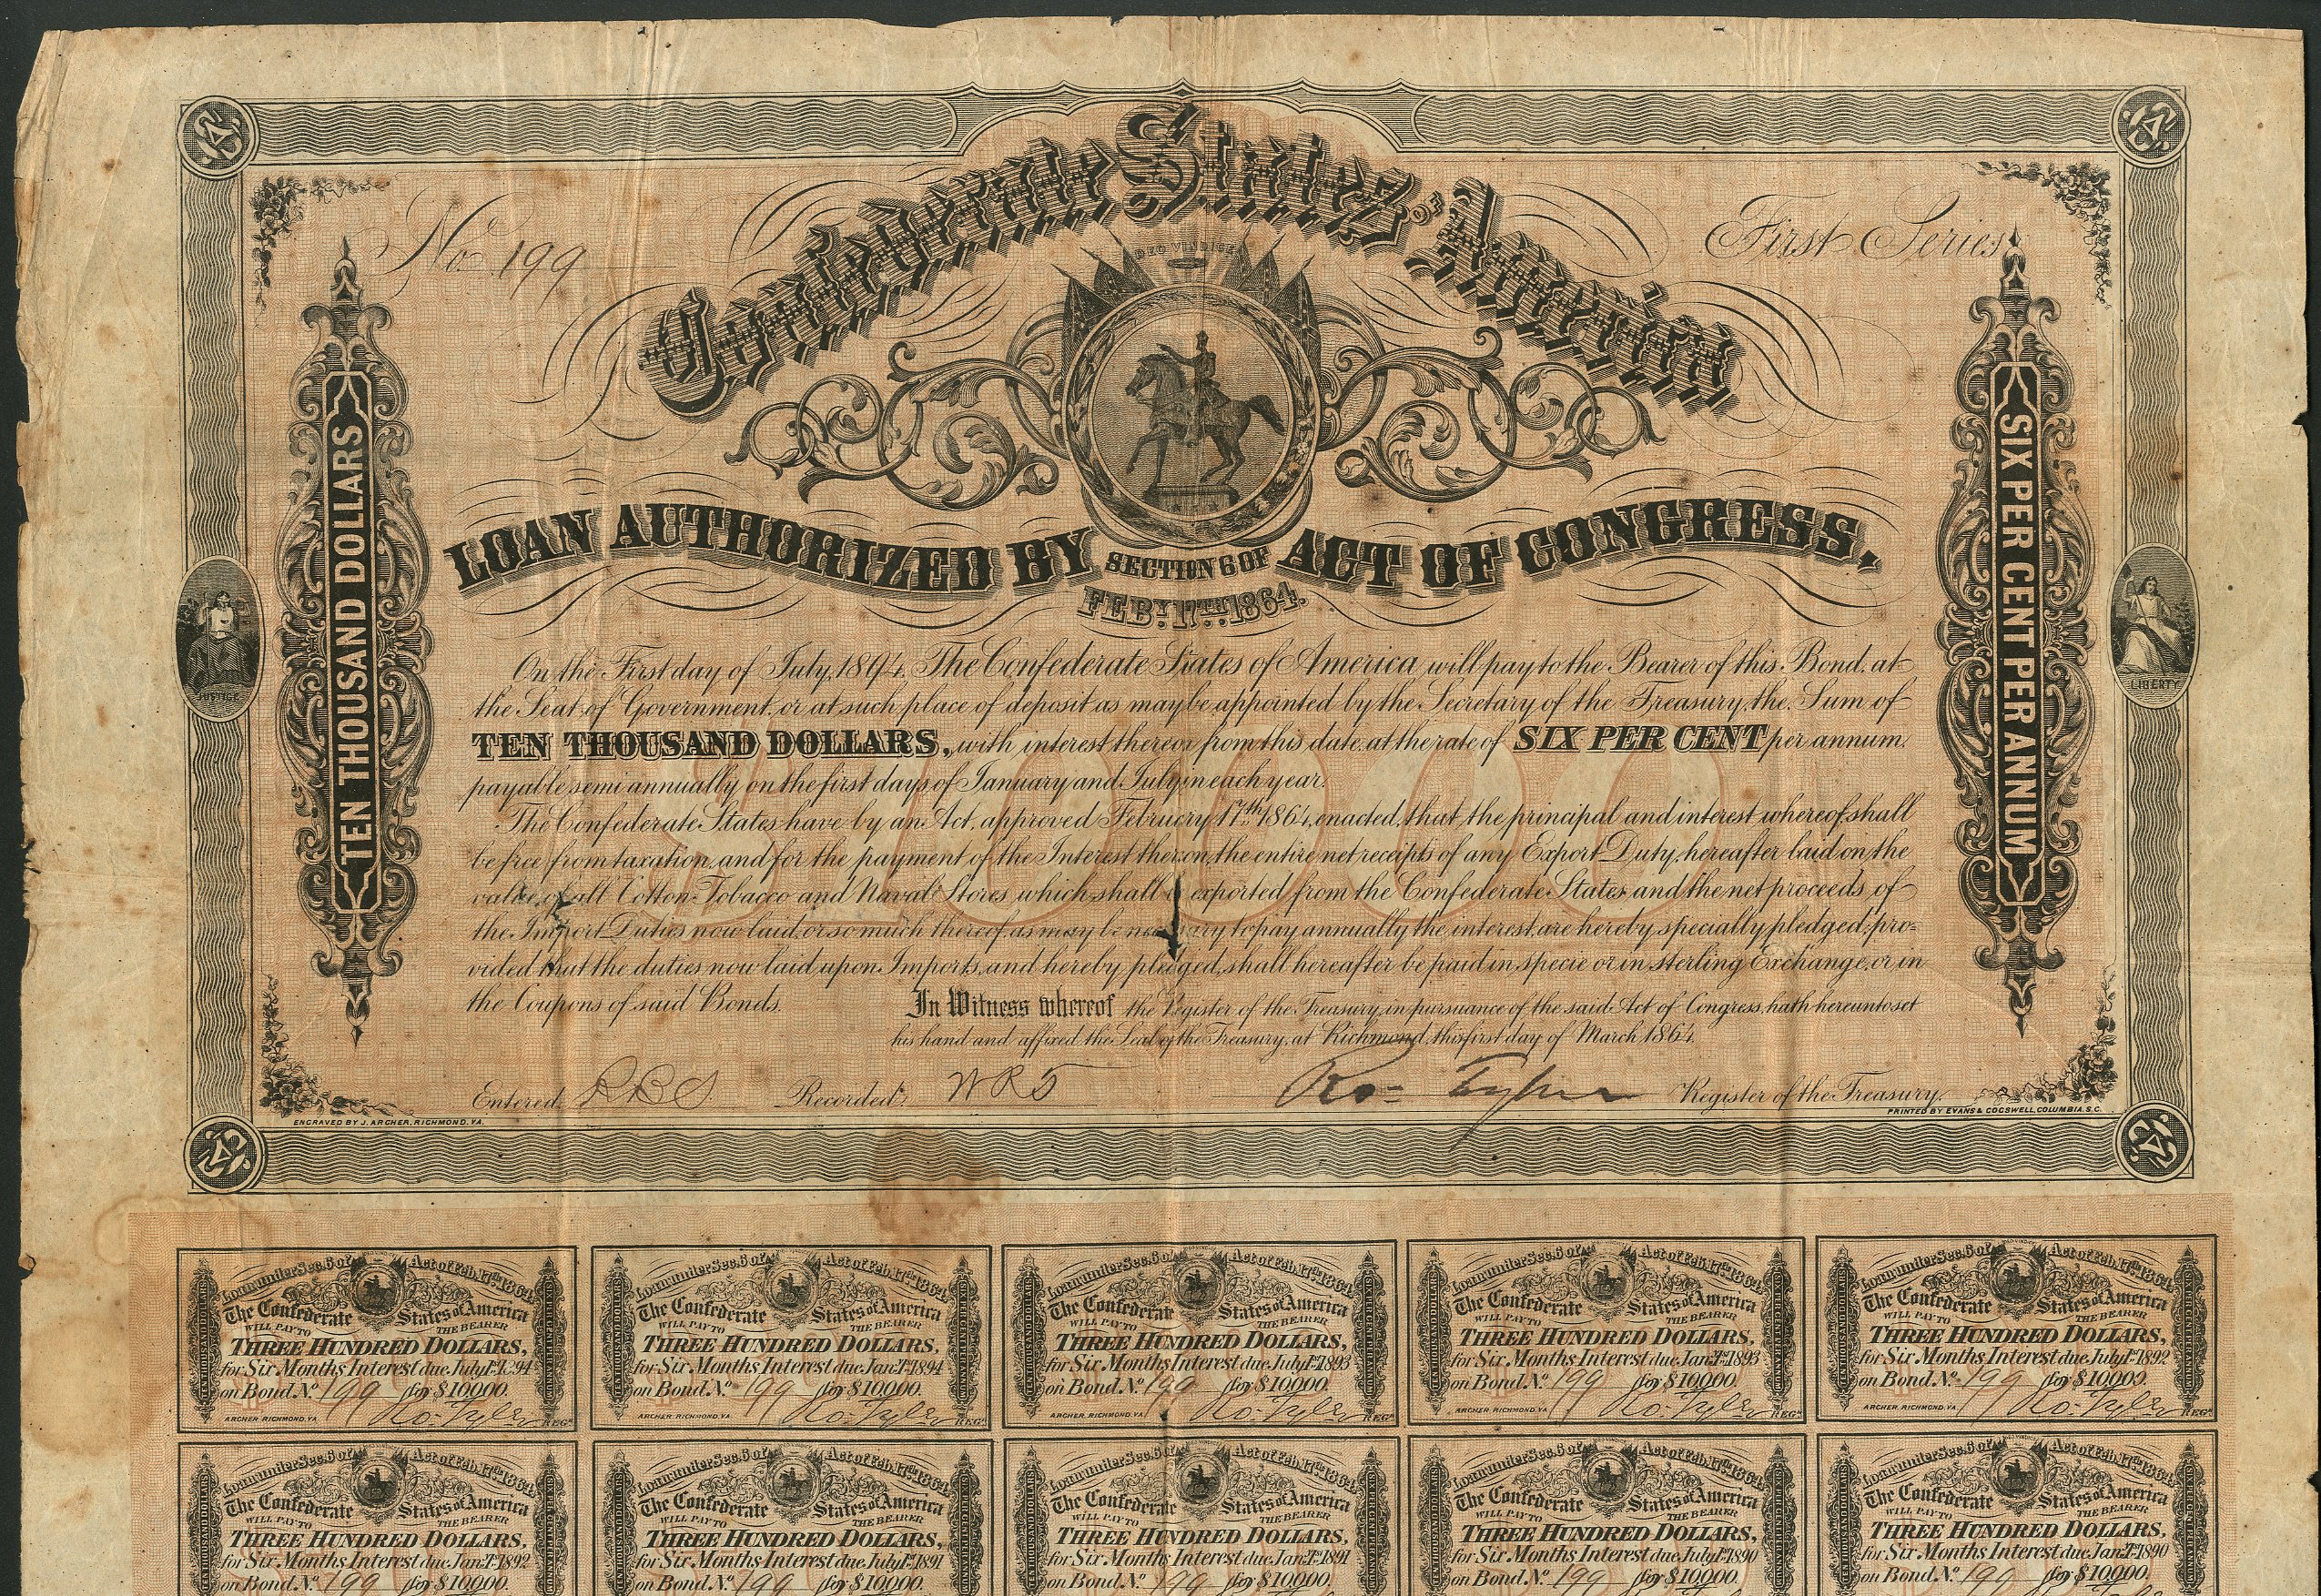 No 199
First Series
Confederate States of America
DEO VINDICE
TEN THOUSAND DOLLARS
SIX PER CENT PER ANNUM
LOAN AUTHORIZED BY SECTION 6 OF ACT OF CONGRESS,
FEBY. 17TH. 1864.
JUSTICE
LIBERTY
On the First day of July, 1894, The Confederate States of America, will pay to the Bearer of this Bond, at
the Seat of Government, or at such place of deposit as may be appointed by the Secretary of the Treasury, the Sum of
TEN THOUSAND DOLLARS, with interest thereon from this date, at the rate of SIX PER CENT per annum.
payable semi annually on the first days of January and July, in each year.
The Confederate States have by an Act, approved February 17th 1864, enacted, that, the principal and interest whereof shall
be free from taxation, and for the payment of the Interest thereon, the entire net receipts of any Export Duty, hereafter laid on the
value, of all Cotton, Tobacco and Naval Stores, which, shall exported from the Confederate States, and the net proceeds of
the Import Duties now laid, or so much thereof, as may be to pay annually the interest, are hereby specially pledged; pro=
vided that the duties now laid upon Imports, and hereby pledged, shall hereafter be paid in specie or in sterling Exchange, or in
the Coupons of said Bonds.
In Witness whereof the Register of the Treasury, in pursuance of the said Act of Congress, hath hereunto set
his hand and affixed the Seal of the Treasury, at Richmond, this first day of March, 1864.
Entered, RBS Recorded, WRS Ro= Tyler Register of the Treasury.
ENGRAVED BY J. ARCHER, RICHMOND, VA.
PRINTED BY EVANS & COGSWELL, COLUMBIA, S.C.
$10000
Loan under Sec. 6 of Act of Feb. 17th 1864
The Confederate States of America
WILL PAY TO THE BEARER
THREE HUNDRED DOLLARS,
for Six Months Interest due July 1st 1894
on Bond No. 199 for $10,000.
Ro. Tyler REGR
ARCHER, RICHMOND, VA
Loan under Sec. 6 of Act of Feb. 17th 1864
The Confederate States of America
WILL PAY TO THE BEARER
THREE HUNDRED DOLLARS,
for Six Months Interest due Jan. 1st 1894
on Bond No. 199 for $10,000.
Ro. Tyler REGR
ARCHER, RICHMOND, VA
Loan under Sec. 6 of Act of Feb. 17th 1864
The Confederate States of America
WILL PAY TO THE BEARER
THREE HUNDRED DOLLARS,
for Six Months Interest due July 1st 1893
on Bond No. 199 for $10,000.
Ro. Tyler REGR
ARCHER, RICHMOND, VA
Loan under Sec. 6 of Act of Feb. 17th 1864
The Confederate States of America
WILL PAY TO THE BEARER
THREE HUNDRED DOLLARS,
for Six Months Interest due Jan. 1st 1893
on Bond No. 199 for $10,000.
Ro. Tyler REGR
ARCHER, RICHMOND, VA
Loan under Sec. 6 of Act of Feb. 17th 1864
The Confederate States of America
WILL PAY TO THE BEARER
THREE HUNDRED DOLLARS,
for Six Months Interest due July 1st 1892
on Bond No. 199 for $10,000.
Ro. Tyler REGR
ARCHER, RICHMOND, VA
Loan under Sec. 6 of Act of Feb. 17th 1864
The Confederate States of America
WILL PAY TO THE BEARER
THREE HUNDRED DOLLARS,
for Six Months Interest due Jan. 1st 1892
on Bond No. 199 for $10,000.
Loan under Sec. 6 of Act of Feb. 17th 1864
The Confederate States of America
WILL PAY TO THE BEARER
THREE HUNDRED DOLLARS,
for Six Months Interest due July 1st 1891
on Bond No. 199 for $10,000.
Loan under Sec. 6 of Act of Feb. 17th 1864
The Confederate States of America
WILL PAY TO THE BEARER
THREE HUNDRED DOLLARS,
for Six Months Interest due Jan. 1st 1891
on Bond No. 199 for $10,000.
Loan under Sec. 6 of Act of Feb. 17th 1864
The Confederate States of America
WILL PAY TO THE BEARER
THREE HUNDRED DOLLARS,
for Six Months Interest due July 1st 1890
on Bond No. 199 for $10,000.
Loan under Sec. 6 of Act of Feb. 17th 1864
The Confederate States of America
WILL PAY TO THE BEARER
THREE HUNDRED DOLLARS,
for Six Months Interest due Jan. 1st 1890
on Bond No. 199 for $10,000.